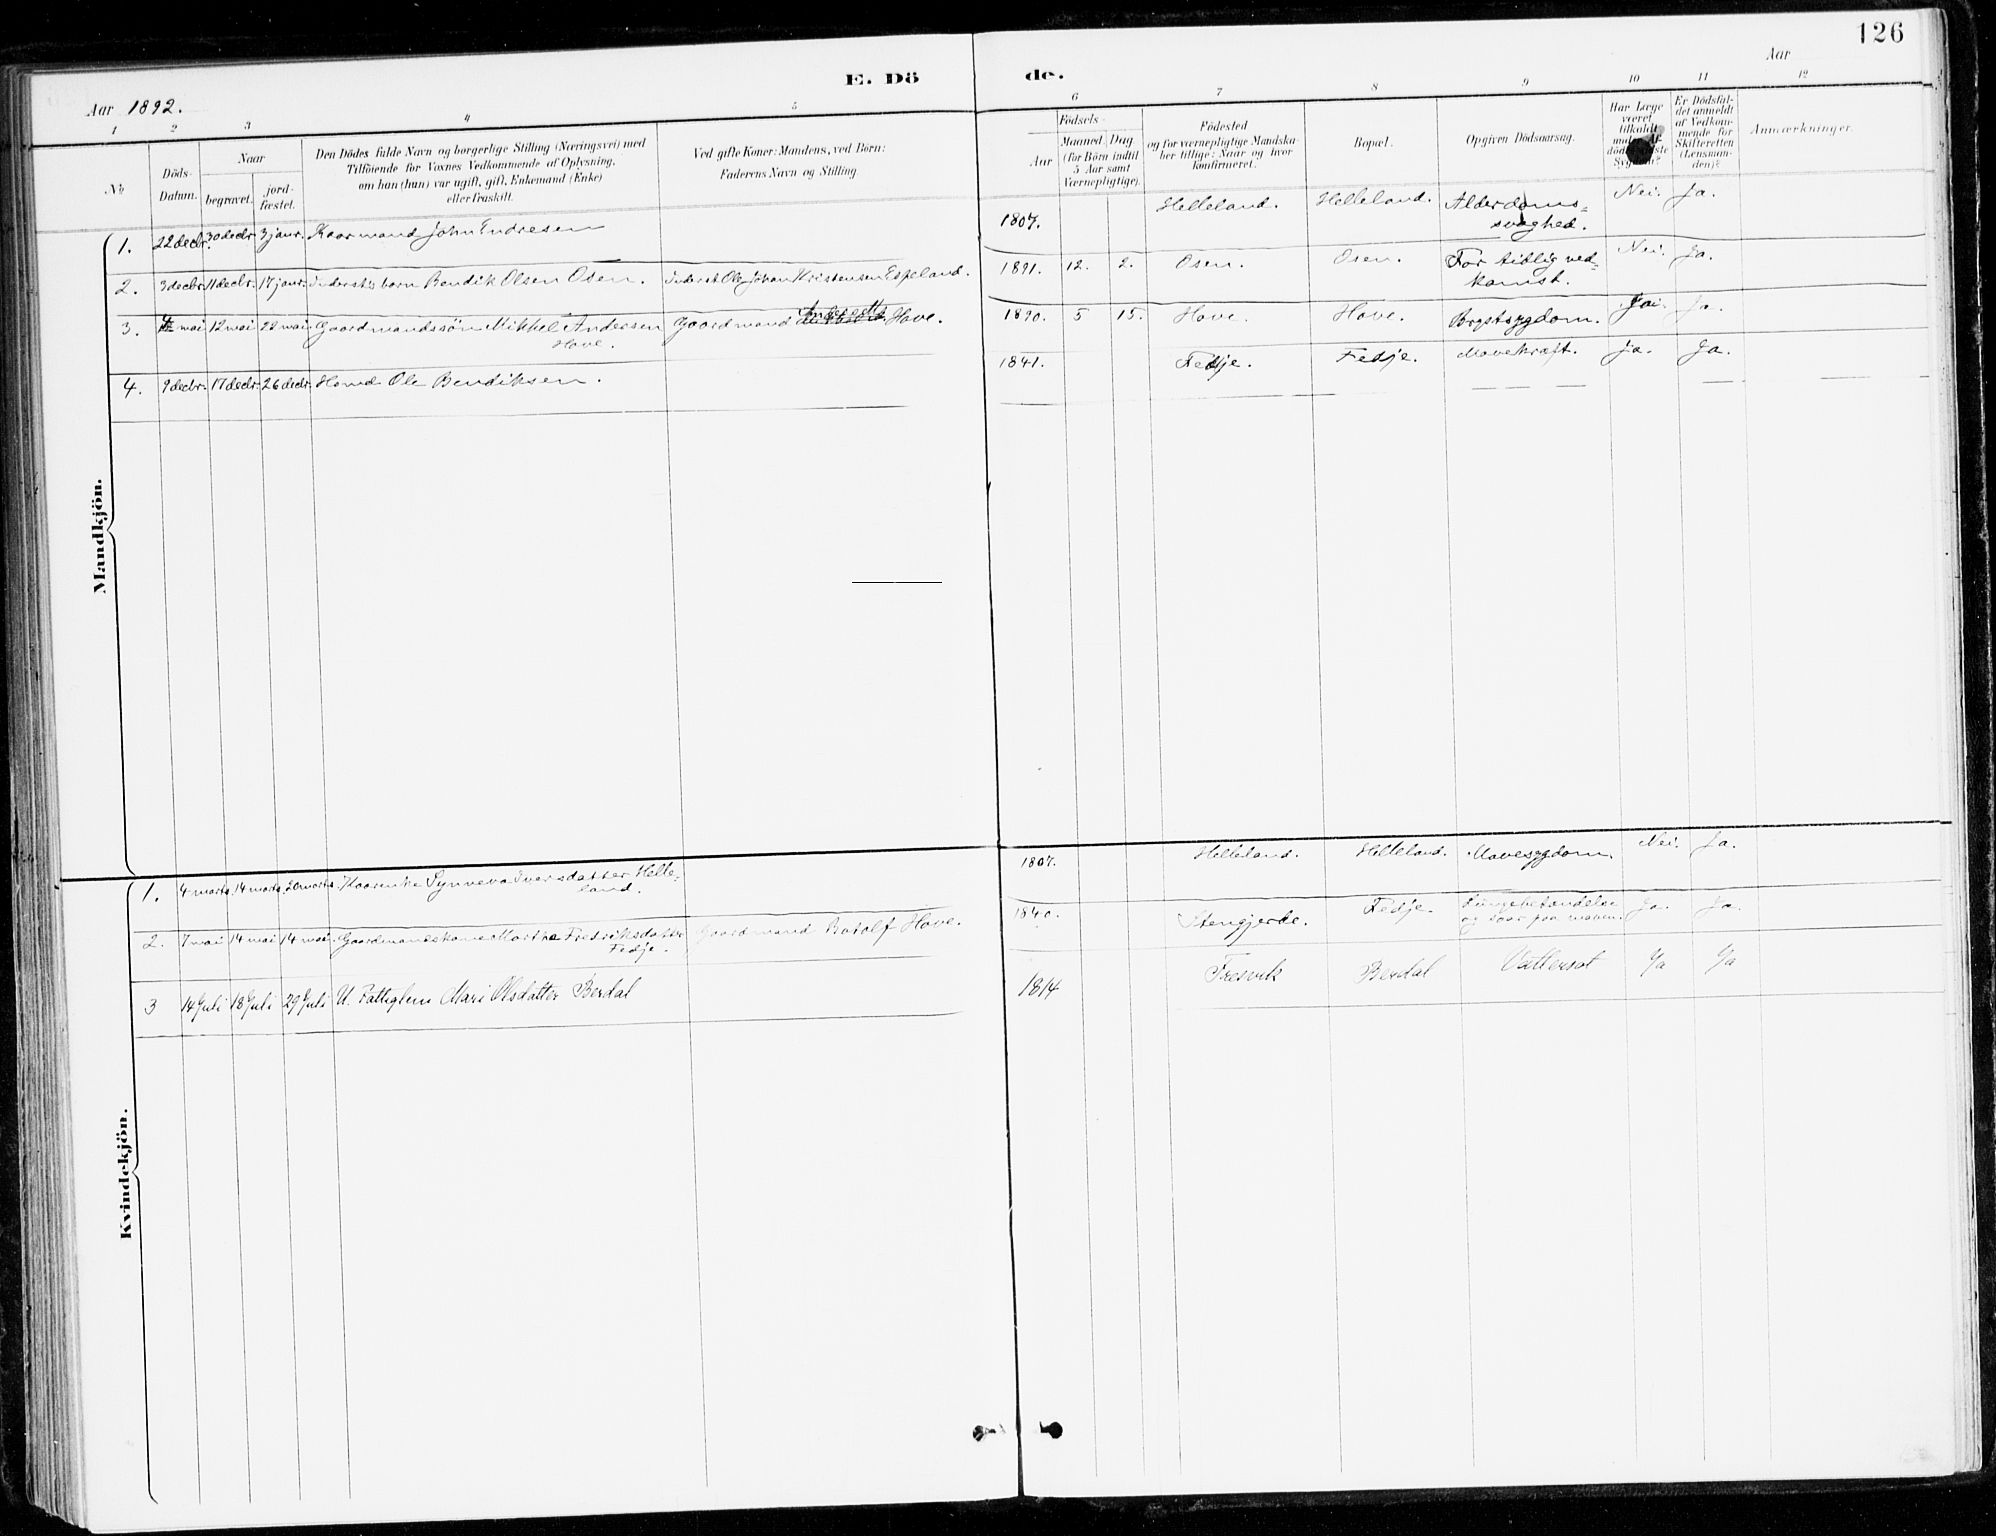 126
E. Dö de.
Aar 1892.
Aar
1 2 3 4 5 6 7 8 9 10 11 12
No
Döds-Datum.
Naar
begravet.
jord-fæstet.
Den Dödes fulde Navn og borgerlige Stilling (Næringsvei) med
Tilföiende for Voxnes Vedkommende af Oplysning,
om han (hun) var ugift, gift, Enkemand (Enke)
eller fraskilt.
Ved gifte Koner: Mandens, ved Börn:
Faderens Navn og Stilling.
Födsels-
Aar
Maaned. Dag
(for Börn indtil
5 Aar samt
Værnepligtige).
Födested
og for værnepligtige Mandska-
ber tillige: Naar og hvor
konfirmeret.
Bopæl.
Opgiven Dödsaarsag.
Har Læge
været
tilkaldt
Er Dödsfal-
det anmeldt
af Vedkom-
mende for
Skifteretten
(Lensman-
den)?
Anmærkninger.
Mandkjön.
1. 22 decbr. 30 decbr. 3 janr. Kaarmand John Endresen 1807. Helleland. Helleland. Alderdoms-
svaghed. Nei. Ja.
2. 3 decbr. 11 decbr. 17 janr. Inderstes barn Bendik Olsen Osen. Inderst Ole Johan Kristensen Espeland. 1891. 12. 2. Osen. Osen. For tidlig ned-
komst. Nei. Ja.
3. 4 mai 12 mai 22 mai Gaardmandssön Mikkel Andersen
Hove. Gaardmand Hove. 1890. 5 15. Hove. Hove. Brystsygdom. Ja.
4. 9 decbr. 17 decbr. 26 decbr. Ole Bendiksen. 1841. Fedje. Fedje. Mavekræft. Ja. Ja.
Kvindekjön.
1. 4 marts 14 marts 20 marts Kaarenke Synneva Iversdatter Helle-
land. 1807. Helleland. Helleland. Mavesygdom. Nei. Ja.
2. 7 mai 14 mai 14 mai Gaardmandskone Marthe Fredriksdatter
Fedje. Gaardmand Botolf Hove. 1840. Stengjerde. Fedje. Lungebetændelse
og saar paa maven. Ja. Ja.
3 14 Juli 18 Juli 29 Juli U. Fattiglem Mari Olsdatter Berdal 1814 Fresvik Berdal Vattersot Ja Ja